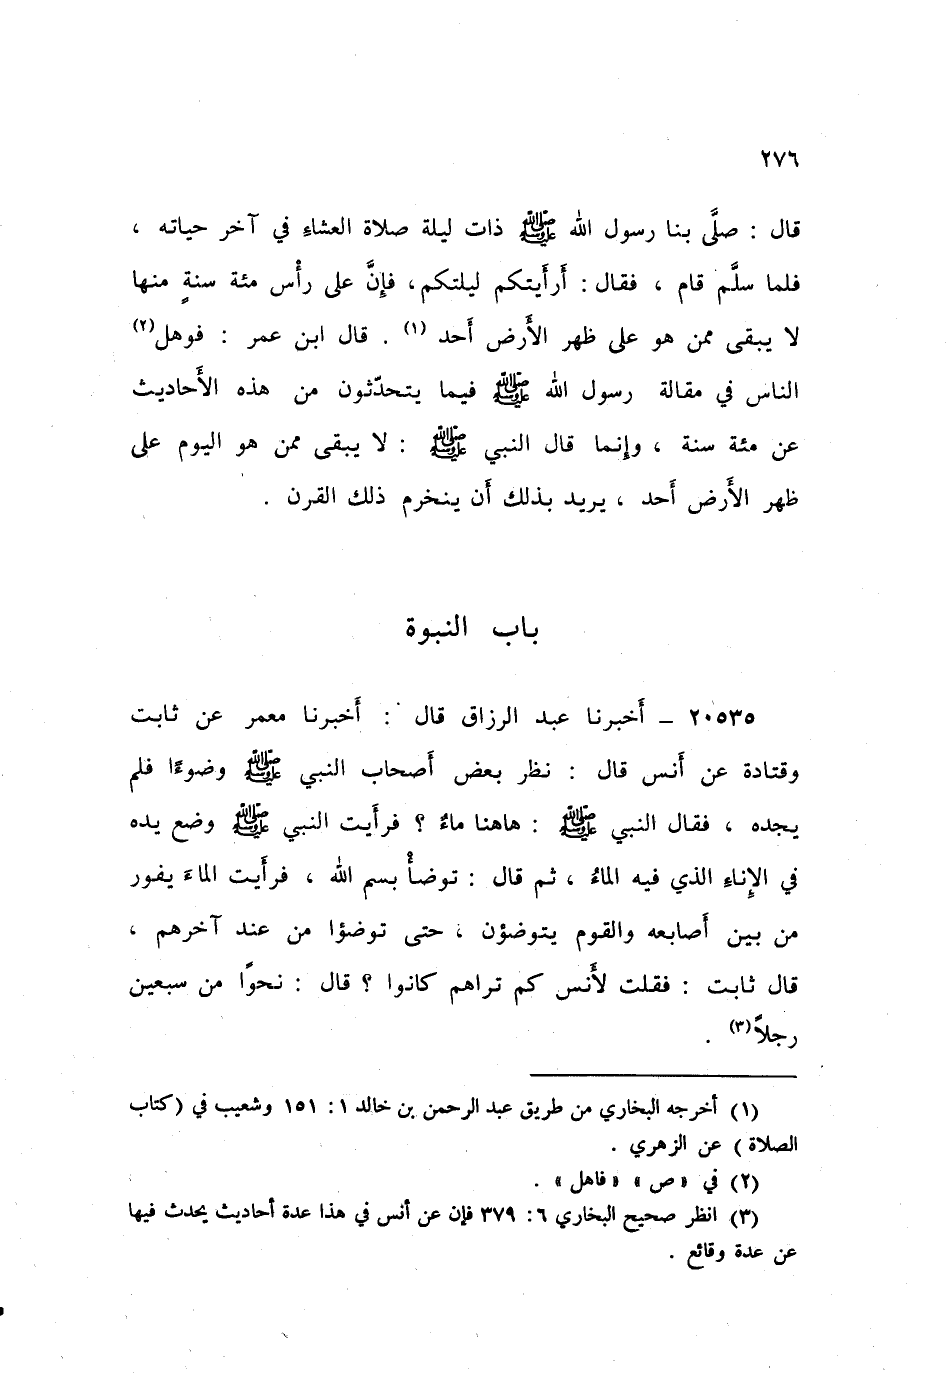 ٢٧٦
قال : صلَّى بنا رسول الله ﷺ ذات ليلة صلاة العشاءِ في آخر حياته ،
فلما سلَّم قام ، فقال : أَرأَيتكم ليلتكم ، فإِنَّ على رأْس مئة سنةٍ منها
لا يبقى ممن هو على ظهر الأَرض أَحد (١) . قال ابن عمر : فوهل(٢)
الناس في مقالة رسول الله ﷺ فيما يتحدّثون من هذه الأَحاديث
عن مئة سنة ، وإِنما قال النبي ﷺ : لا يبقى ممن هو اليوم على
ظهر الأَرض أَحد ، يريد بذلك أَن ينخرم ذلك القرن .
باب النبوة
٢٠٥٣٥ – أَخبرنا عبد الرزاق قال : أَخبرنا معمر عن ثابت
وقتادة عن أَنس قال : نظر بعض أَصحاب النبي ﷺ وضوءًا فلم
يجده ، فقال النبي ﷺ : هاهنا ماءٌ ؟ فرأَيت النبي ﷺ وضع يده
في الإِناءِ الذي فيه الماءُ ، ثم قال : توضأُ بسم الله ، فرأَيت الماءَ يفور
من بين أَصابعه والقوم يتوضؤن ، حتى توضؤا من عند آخرهم ،
قال ثابت : فقلت لأَنس كم تراهم كانوا ؟ قال : نحوًا من سبعين
رجلاً(٣) .
(١) أخرجه البخاري من طريق عبد الرحمن بن خالد ١ : ١٥١ وشعيب في (كتاب
الصلاة ) عن الزهري .
(٢) في « ص » « فاهل » .
(٣) انظر صحيح البخاري ٦ : ٣٧٩ فإن عن أنس في هذا عدة أحاديث يحدث فيها
عن عدة وقائع .